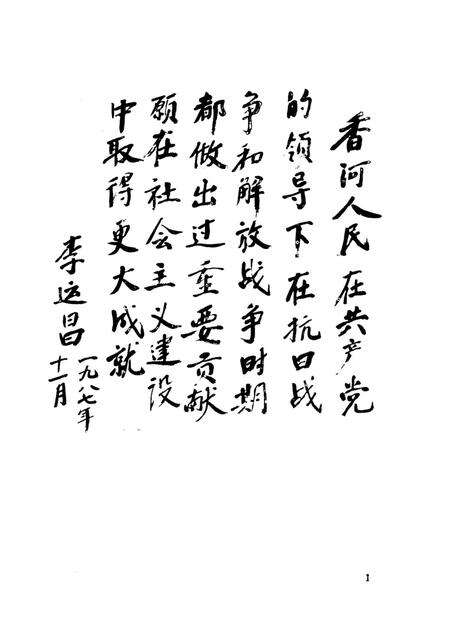 香河人民在共产党
的领导下在抗日战
争和解放战争时期
都做出过重要贡献
愿在社会主义建设
中取得更大成就
李运昌
一九八七年
十一月
1